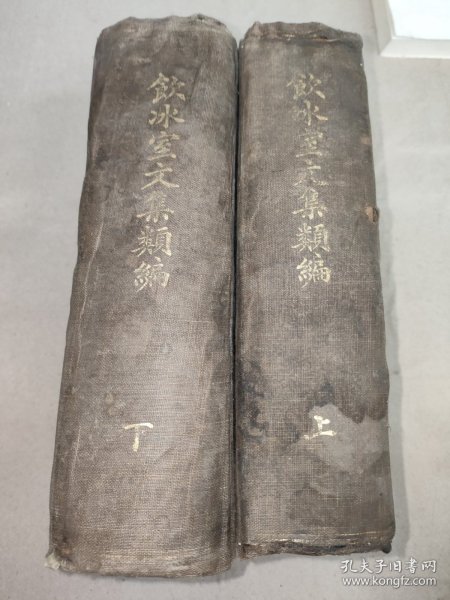 飲冰室文集類編
上
飲冰室文集類編
下
孔夫子旧书网
www.kongfz.com